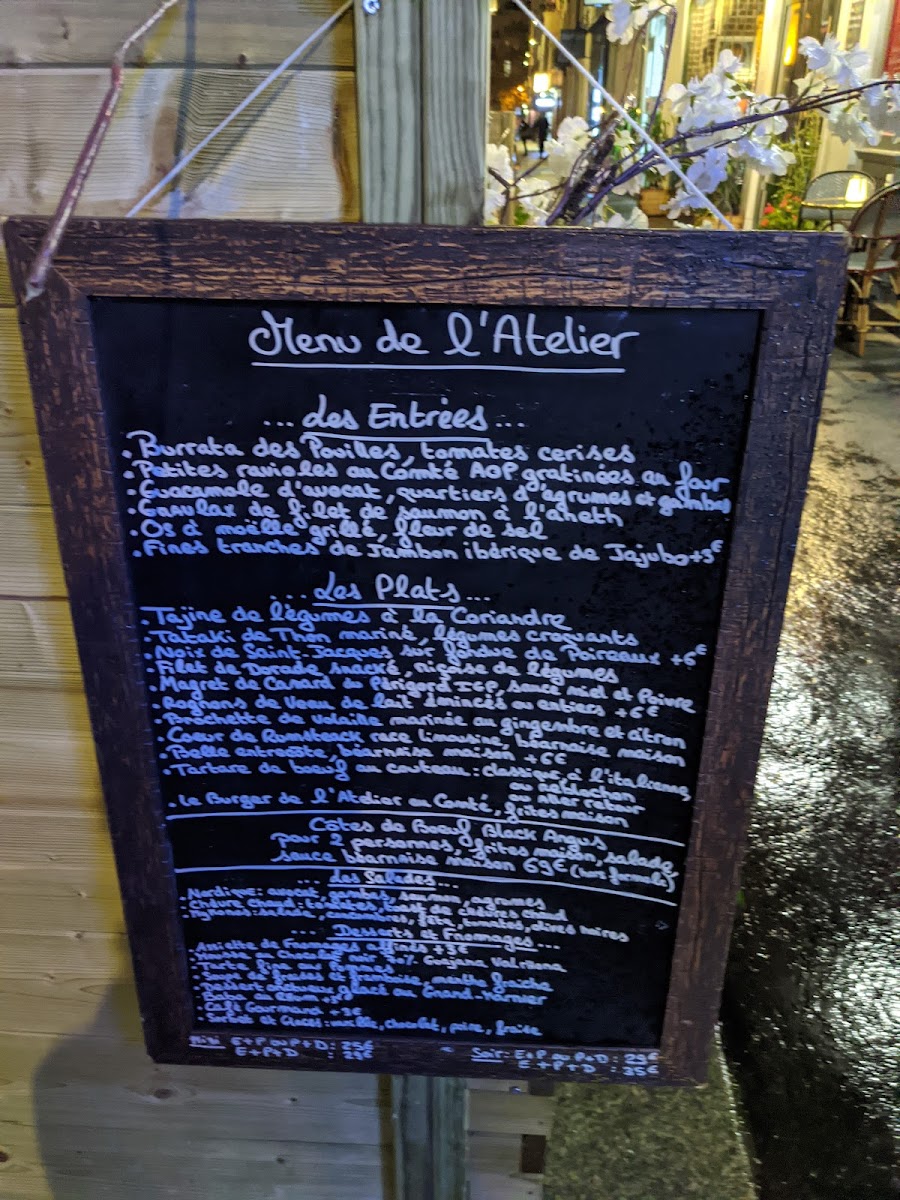 Menu de l'Atelier
...Les Entrées...
.Burrata des Pouilles, tomates cerises
.Petites ravioles au Comté AOP gratinées au four
.Guacamole d'avocat, quartiers d'agrumes et gambas
.Gravlax de filet de saumon à l'aneth
.Os à moëlle grillé, fleur de sel
.Fines tranches de Jambon ibérique de Jajubo +3€
...Les Plats...
.Tajine de légumes à la Coriandre
.Tataki de Thon mariné, légumes croquants
.Noix de Saint-Jacques sur fondue de Poireaux +6€
.Filet de Dorade snacké, niçoise de légumes
.Magret de Canard du Périgord IGP, sauce miel et Poivre
.Rognons de Veau de lait émincés ou entiers +6€
.Brochette de Volaille marinée au gingembre et citron
.Coeur de Rumsteack race limousine, béarnaise maison
.Belle entrecôte, béarnaise maison +6€
.Tartare de boeuf au couteau: classique, à l'italienne,
ou aller retour
.le Burger de l'Atelier au Comté, frites maison
Côtes de Boeuf Black Angus
pour 2 personnes, frites maison, salade,
sauce béarnaise maison 69€ (hors formule)
...Les Salades...
Nordique: avocat, saumon, agrumes
Chèvre chaud: tomates, de chèvres chaud
salade, feta, tomates, olives noires
...Desserts et Fromages...
.Assiette de Fromages affinés +3€
noir 70% Guajana Valrhona
menthe fraîche
glacé au Grand-Marnier
.Baba au Rhum
.Café Gourmand +3€
et Glaces: vanille, chocolat, poire, fraise
Midi E+P ou P+D: 25€ Soir: E+P ou P+D: 29€
E+P+D : 29€ E+P+D : 35€